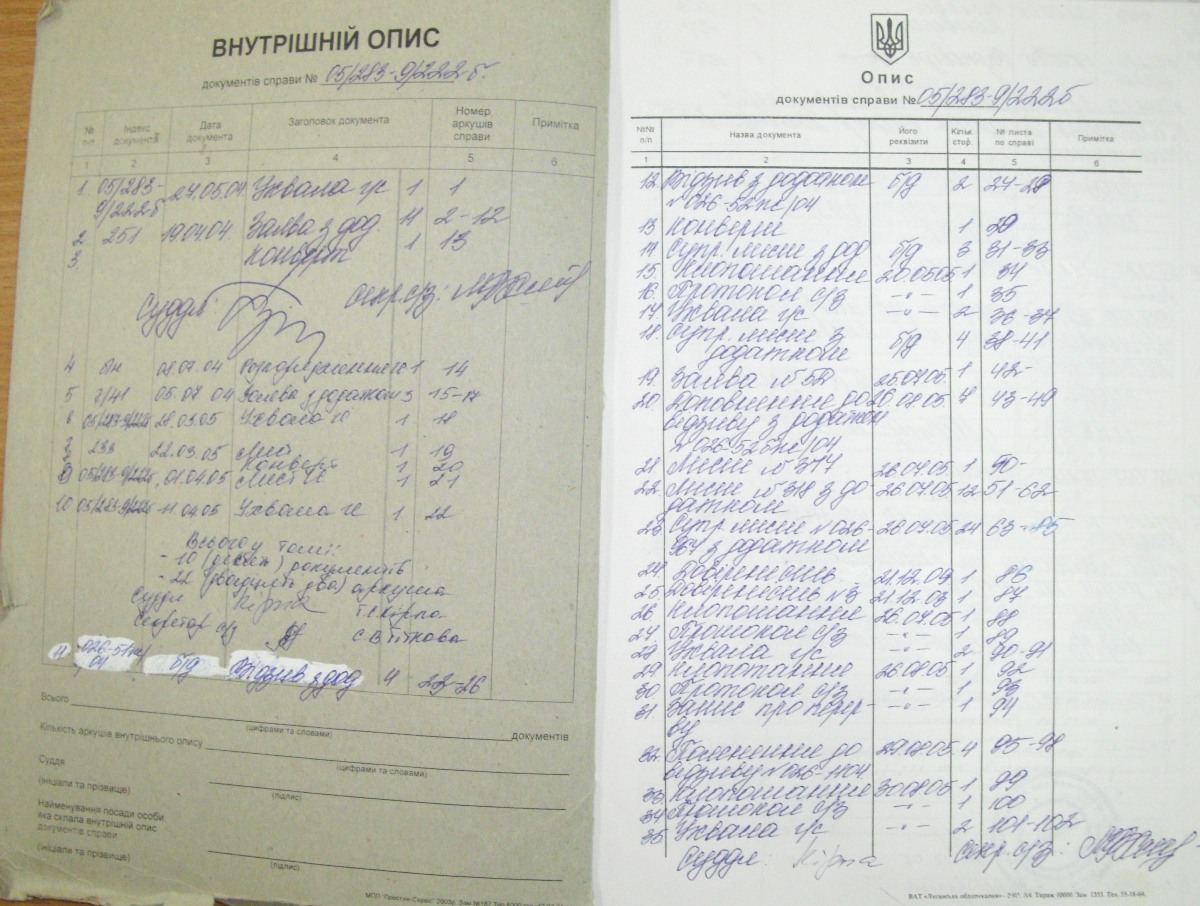 ВНУТРІШНІЙ ОПИС
документів справи № 05/283-9/222б.
№ п/п Індекс документа Дата документа Заголовок документа Номер аркушів справи Примітка
1 2 3 4 5 6
1. 05/283-9/222б 27.05.04 Ухвала г/с 1 1
2. 251 19.04.04. Заява з дод. 11 2-12
3. конверт 1 13
Суддя секр. с/з:
4 б/н 08.07.04 1 14
5 05.07.04 Заява з додатком 3 15-17
6 05/283-9/222б 28.03.05 Ухвала 1 18
7 233 22.03.05 Лист 1 19
8 Конверт 1 20
9 05/283-9/222б 01.04.05 Лист 1 21
10 05/283-9/222б 11.04.05 Ухвала 1 22
Всього у томі:
- 10 (десять) документів
- 22 (двадцять два) аркуша
Суддя Кірпа Т.С. Кірпа
Секретар с/з С.В. Тіткова
11 026-51пк/04 б/д Відзив з дод 4 23-26
Всього документів
(цифрами та словами)
Кількість аркушів внутрішнього опису
(цифрами та словами)
Суддя
(ініціали та прізвище) (підпис)
Найменування посади особи,
яка склала внутрішній опис
документів справи
(ініціали та прізвище) (підпис)
Опис
документів справи № 05/283-9/222б
№№ п/п Назва документа Його реквізити Кільк. стор. № листа по справі Примітка
1 2 3 4 5 6
12. Відзив з додатком б/д 2
№026-52пк/04
13 Конверт 1
14. Супр. лист з дод б/д 3 31-33
15. Клопотання 20.05.05 1 34
16. Протокол с/з -"- 1 35
17. Ухвала г/с -"- 2 36-37
18. Супр. лист з
додатком б/д 4 38-41
19. Заява №52 25.07.05. 1 42
20. Доповнення до 26.07.05 7 43-49
відзиву з додатком
№026-52пк/04
21. Лист №317 26.07.05 1 50
22. Лист №318 з до- 26.07.05 12 51-62
датком
23. Супр. лист №026- 26.07.05
967 з додатком
24. Довіреність 1 86
25 Довіреність №3 21.12.03 1 87
26. Клопотання 26.07.05 1 88
27 Протокол с/з -"- 1 89
28 Ухвала г/с -"- 2 90-91
29. Клопотання 26.08.05 1 92
30 Протокол с/з -"- 1 93
31. Запис про перер- -"- 1 94
ву
32. Пояснення до 29.08.05 4 95-98
відзиву №026-
33 Клопотання 30.08.05 1 99
34 Протокол с/з -"- 1 100
35 Ухвала г/с -"- 2 101-102
Суддя: Кірпа секр. с/з: